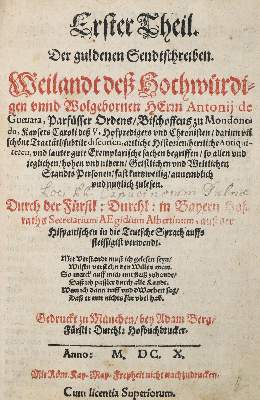 Erster Theil.
Der guldenen Sendtschreiben.
Weilandt deß Hochwürdi-
gen vnnd Wolgebornen HErrn Antonij de
Gueuara, Parfüsser Ordens, Bischoffens zu Mondone-
do, Kaysers Caroli deß V. Hofpredigers vnd Chronisten / darinn vil
schöne Tractätl subtile discursen, artliche Historien herrliche Antiqui-
teten, vnd lauter gute Exemplarische sachen begriffen / so allen vnd
jeglichen / hohen vnd nidern / Geistlichen vnd Weltlichen
Stands Personen / fast kurtzweilig / annemblich
vnd nutzlich zulesen.
Durch der Fürstl: Durchl: in Bayern Hof-
raths Secretarium AEgidium Albertinum, auß der
Hispanischen in die Teutsche Sprach auffs
fleissigist verwendt.
Mit Verstandt must ich gelesen seyn /
So merck auff mich mit fleiß zuhand /
Daß ich passier durch alle Landt.
Gedruckt zu München / bey Adam Berg /
Fürstl: Durchl: Hofbuchdrucker.
Anno: M. DC. X.
Mit Röm: Kay: May: Freyheit nicht nachzudrucken.
Cum licentia Superiorum.